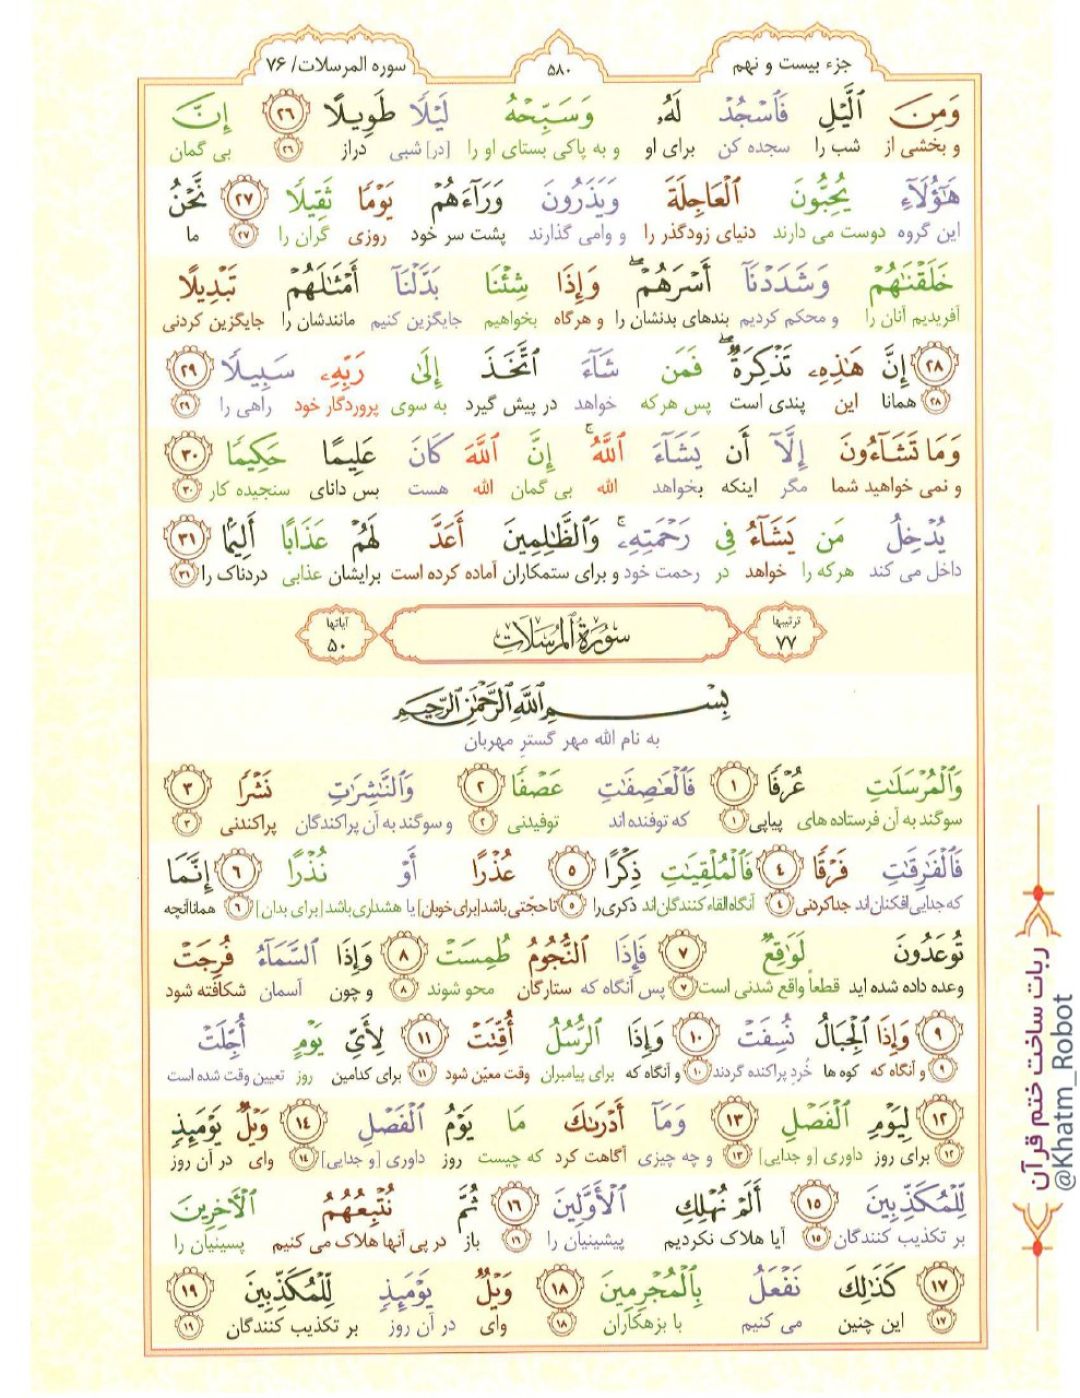 جزء بیست و نهم
۵۸۰
سوره المرسلات/ ۷۶
وَمِنَ ٱلَّيۡلِ فَٱسۡجُدۡ لَهُۥ وَسَبِّحۡهُ لَيۡلٗا طَوِيلًا ٢٦ إِنَّ
و بخشی از شب را سجده کن برای او و به پاکی بستای او را [در] شبی دراز ۲۶ بی گمان
هَٰٓؤُلَآءِ يُحِبُّونَ ٱلۡعَاجِلَةَ وَيَذَرُونَ وَرَآءَهُمۡ يَوۡمٗا ثَقِيلٗا ٢٧ نَّحۡنُ
این گروه دوست می دارند دنیای زودگذر را و وامی گذارند پشت سر خود روزی گران را ۲۷ ما
خَلَقۡنَٰهُمۡ وَشَدَدۡنَآ أَسۡرَهُمۡۖ وَإِذَا شِئۡنَا بَدَّلۡنَآ أَمۡثَٰلَهُمۡ تَبۡدِيلًا
آفریدیم آنان را و محکم کردیم بندهای بدنشان را و هرگاه بخواهیم جایگزین کنیم مانندشان را جایگزین کردنی
٢٨ إِنَّ هَٰذِهِۦ تَذۡكِرَةٞۖ فَمَن شَآءَ ٱتَّخَذَ إِلَىٰ رَبِّهِۦ سَبِيلٗا ٢٩
۲۸ همانا این پندی است پس هرکه خواهد در پیش گیرد به سوی پروردگار خود راهی را ۲۹
وَمَا تَشَآءُونَ إِلَّآ أَن يَشَآءَ ٱللَّهُۚ إِنَّ ٱللَّهَ كَانَ عَلِيمًا حَكِيمٗا ٣٠
و نمی خواهید شما مگر اینکه بخواهد الله بی گمان الله هست بس دانای سنجیده کار ۳۰
يُدۡخِلُ مَن يَشَآءُ فِي رَحۡمَتِهِۦۚ وَٱلظَّٰلِمِينَ أَعَدَّ لَهُمۡ عَذَابًا أَلِيمَۢا ٣١
داخل می کند هرکه را خواهد در رحمت خود و برای ستمکاران آماده کرده است برایشان عذابی دردناک را ۳۱
ترتیبها ۷۷
سُورَةُ ٱلمُرۡسَلَات
آیاتها ۵۰
بِسۡمِ ٱللَّهِ ٱلرَّحۡمَٰنِ ٱلرَّحِيمِ
به نام الله مهر گستر مهربان
وَٱلۡمُرۡسَلَٰتِ عُرۡفٗا ١ فَٱلۡعَٰصِفَٰتِ عَصۡفٗا ٢ وَٱلنَّٰشِرَٰتِ نَشۡرٗا ٣
سوگند به آن فرستاده های پیاپی ۱ که توفنده اند توفیدنی ۲ و سوگند به آن پراکندگان پراکندنی ۳
فَٱلۡفَٰرِقَٰتِ فَرۡقٗا ٤ فَٱلۡمُلۡقِيَٰتِ ذِكۡرًا ٥ عُذۡرًا أَوۡ نُذۡرًا ٦ إِنَّمَا
که جدایی افکنان اند جداکردنی ۴ آنگاه القاء کنندگان اند ذکری را ۵ تا حجّتی باشد [برای خوبان] یا هشداری باشد [برای بدان] ۶ همانا آنچه
تُوعَدُونَ لَوَٰقِعٞ ٧ فَإِذَا ٱلنُّجُومُ طُمِسَتۡ ٨ وَإِذَا ٱلسَّمَآءُ فُرِجَتۡ
وعده داده شده اید قطعاً واقع شدنی است ۷ پس آنگاه که ستارگان محو شوند ۸ و چون آسمان شکافته شود
٩ وَإِذَا ٱلۡجِبَالُ نُسِفَتۡ ١٠ وَإِذَا ٱلرُّسُلُ أُقِّتَتۡ ١١ لِأَيِّ يَوۡمٍ أُجِّلَتۡ
۹ و آنگاه که کوه ها خُرد پراکنده گردند ۱۰ و آنگاه که برای پیامبران وقت معیّن شود ۱۱ برای کدامین روز تعیین وقت شده است
١٢ لِيَوۡمِ ٱلۡفَصۡلِ ١٣ وَمَآ أَدۡرَىٰكَ مَا يَوۡمُ ٱلۡفَصۡلِ ١٤ وَيۡلٞ يَوۡمَئِذٖ
۱۲ برای روز داوری [و جدایی] ۱۳ و چه چیزی آگاهت کرد که چیست روز داوری [و جدایی] ۱۴ وای در آن روز
لِّلۡمُكَذِّبِينَ ١٥ أَلَمۡ نُهۡلِكِ ٱلۡأَوَّلِينَ ١٦ ثُمَّ نُتۡبِعُهُمُ ٱلۡأٓخِرِينَ
بر تکذیب کنندگان ۱۵ آیا هلاک نکردیم پیشینیان را ۱۶ باز در پی آنها هلاک می کنیم پسینیان را
١٧ كَذَٰلِكَ نَفۡعَلُ بِٱلۡمُجۡرِمِينَ ١٨ وَيۡلٞ يَوۡمَئِذٖ لِّلۡمُكَذِّبِينَ ١٩
۱۷ این چنین می کنیم با بزهکاران ۱۸ وای در آن روز بر تکذیب کنندگان ۱۹
ربات ساخت ختم قرآن
@Khatm_Robot